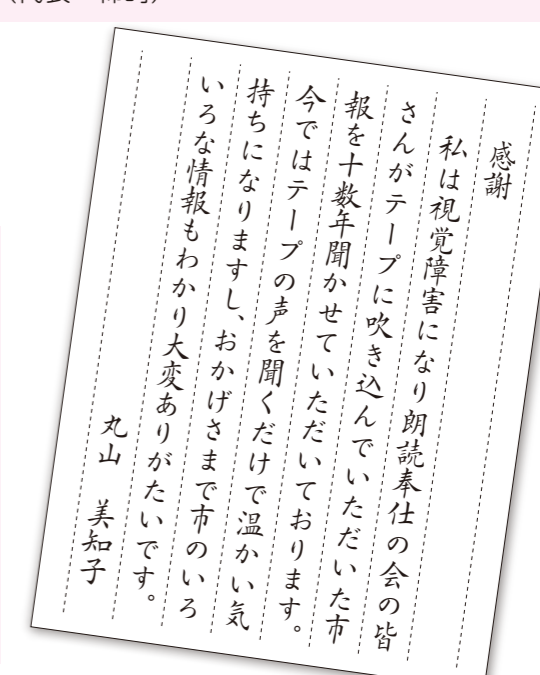 感謝
私は視覚障害になり朗読奉仕の会の皆
さんがテープに吹き込んでいただいた市
報を十数年聞かせていただいております。
今ではテープの声を聞くだけで温かい気
持ちになりますし、おかげさまで市のいろ
いろな情報もわかり大変ありがたいです。
丸山 美知子